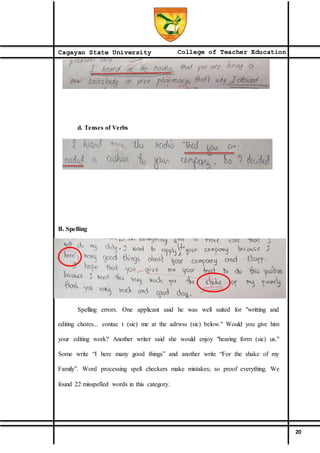 Cagayan State University College of Teacher Education
I heard in the radio that you are hiring a
new saleslady in your pharmacy, that's why I decided
d. Tenses of Verbs
I heard from the radio that you are
need a cashier to your company. So I decided
B. Spelling
not do my duty. I want to apply your company because I
here many good things about your company and stuff.
I hope that you give me your trust to do this position
because I need this very much for the shake of my family
thank you very much and good day.
Spelling errors. One applicant said he was well suited for "writting and
editing chores... contac t (sic) me at the adrwss (sic) below." Would you give him
your editing work? Another writer said she would enjoy "hearing form (sic) us."
Some write “I here many good things” and another write “For the shake of my
Family”. Word processing spell checkers make mistakes; so proof everything. We
found 22 misspelled words in this category.
20